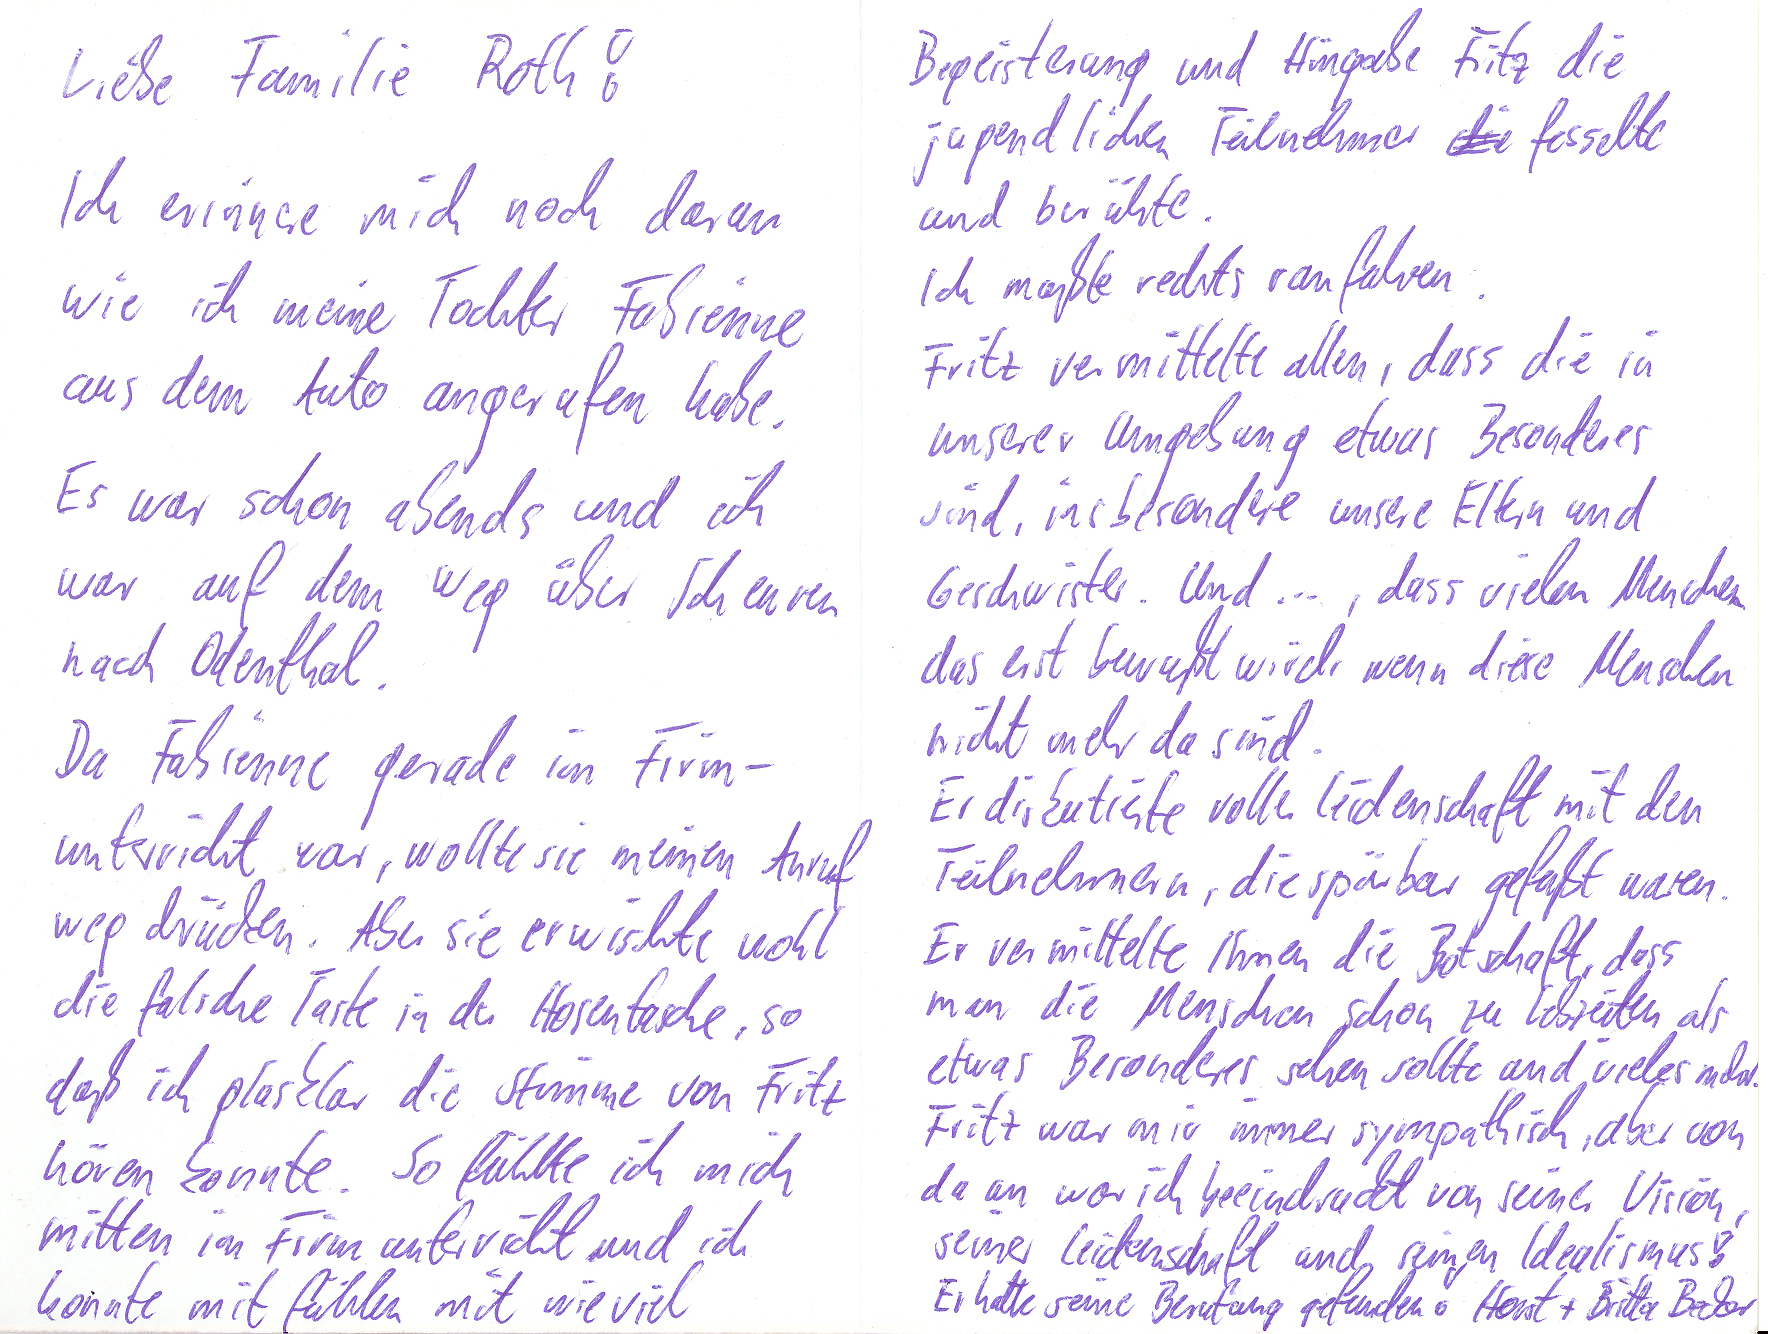 Liebe Familie Roth!
Ich erinnere mich noch daran
wie ich meine Tochter Fabienne
aus dem Auto angerufen habe.
Es war schon abends und ich
war auf dem Weg über Scheuren
nach Odenthal.
Da Fabienne gerade im Firm-
unterricht war, wollte sie meinen Anruf
weg drücken. Aber sie erwischte wohl
die falsche Taste in der Hosentasche, so
daß ich glasklar die Stimme von Fritz
hören konnte. So fühlte ich mich
mitten im Firmunterricht und ich
konnte mit fühlen mit wieviel
Begeisterung und Hingabe Fritz die
jugendlichen Teilnehmer fesselte
und berührte.
Ich mußte rechts ranfahren.
Fritz vermittelte allen, dass die in
unserer Umgebung etwas Besonderes
sind, insbesondere unsere Eltern und
Geschwister. Und ..., dass vielen Menschen
das erst bewußt wird, wenn diese Menschen
nicht mehr da sind.
Er diskutierte voller Leidenschaft mit den
Teilnehmern, die spürbar gefaßt waren.
Er vermittelte Ihnen die Botschaft, dass
man die Menschen schon zu Lebzeiten als
etwas Besonderes sehen sollte und vieles mehr.
Fritz war mir immer sympathisch, aber von
da an war ich beeindruckt von seiner Vision,
seiner Leidenschaft und seinen Idealismus!
Er hatte seine Berufung gefunden. Horst + Britta